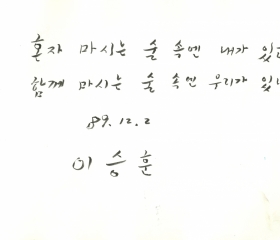 혼자 마시는 술 속엔 내가 있고
함께 마시는 술 속엔 우리가 있
89. 12. 2
이 승 훈